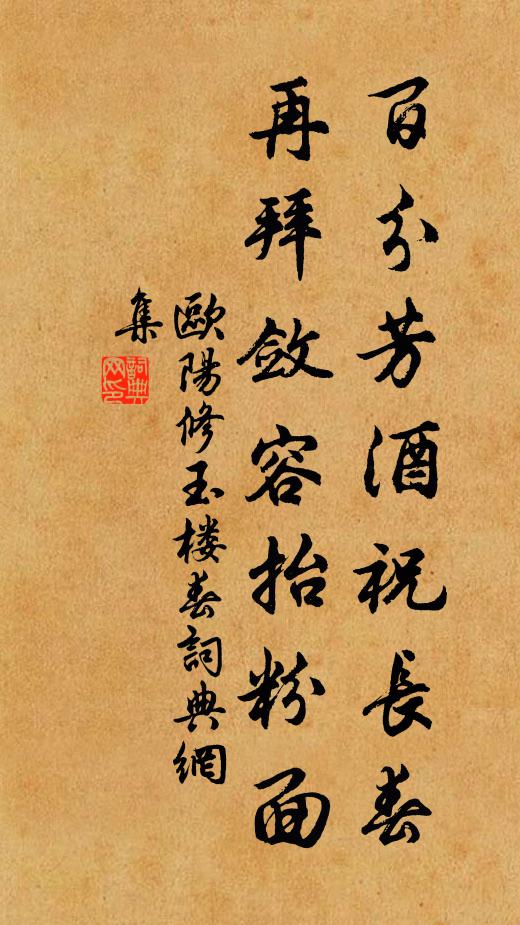 百分芳酒祝長春
再拜斂容抬粉面
歐陽修玉楼春詞典網
集
詞典网印